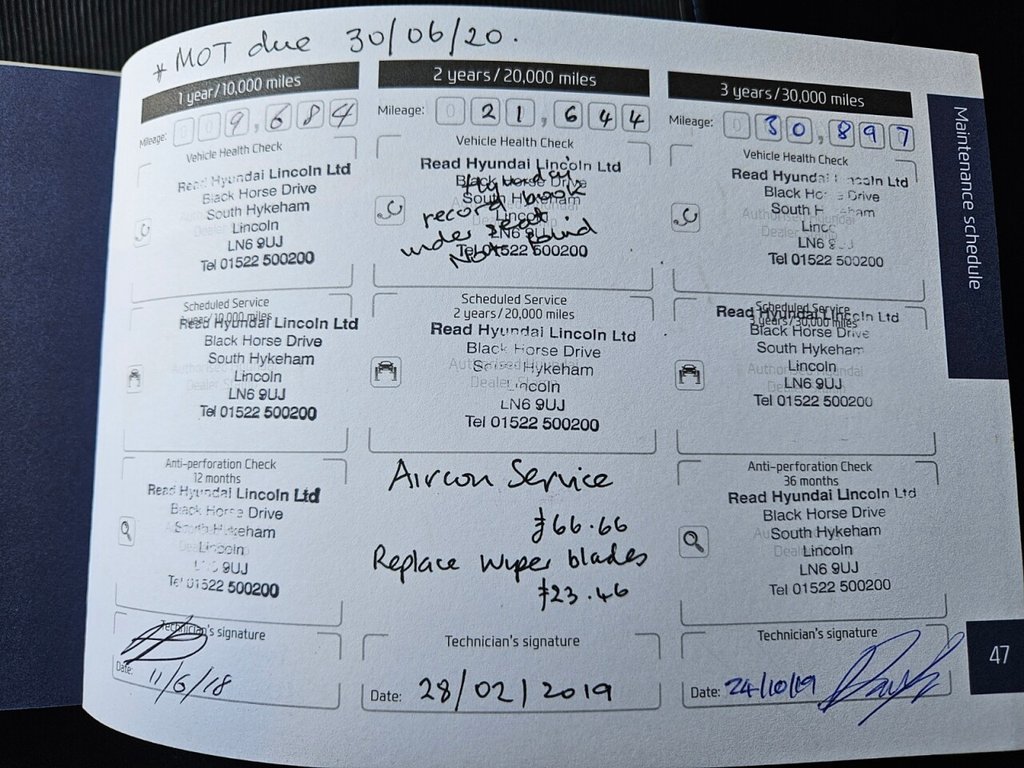 * MOT due 30/06/20.
1 year/10,000 miles
Mileage: 0 0 9,684
Vehicle Health Check
Read Hyundai Lincoln Ltd
Black Horse Drive
South Hykeham
Lincoln
LN6 9UJ
Tel 01522 500200
Scheduled Service
1 year/10,000 miles
Read Hyundai Lincoln Ltd
Black Horse Drive
South Hykeham
Lincoln
LN6 9UJ
Tel 01522 500200
Anti-perforation Check
12 months
Read Hyundai Lincoln Ltd
Black Horse Drive
South Hykeham
Lincoln
LN6 9UJ
Tel 01522 500200
Technician's signature
Date: 11/6/18
2 years/20,000 miles
Mileage: 0 21,644
Vehicle Health Check
Read Hyundai Lincoln Ltd
Black Horse Drive
South Hykeham
Lincoln
LN6 9UJ
Tel 01522 500200
record book
under seat
Not
Scheduled Service
2 years/20,000 miles
Read Hyundai Lincoln Ltd
Black Horse Drive
South Hykeham
Authorised Hyundai
Dealer
Lincoln
LN6 9UJ
Tel 01522 500200
Aircon Service
£66.66
Replace wiper blades
£23.46
Technician's signature
Date: 28/02/2019
3 years/30,000 miles
Mileage: 0 30,897
Vehicle Health Check
Read Hyundai Lincoln Ltd
Black Horse Drive
South Hykeham
Lincoln
LN6 9UJ
Tel 01522 500200
Scheduled Service
3 years/30,000 miles
Read Hyundai Lincoln Ltd
Black Horse Drive
South Hykeham
Lincoln
LN6 9UJ
Tel 01522 500200
Anti-perforation Check
36 months
Read Hyundai Lincoln Ltd
Black Horse Drive
South Hykeham
Lincoln
LN6 9UJ
Tel 01522 500200
Technician's signature
Date: 24/10/19
Maintenance schedule
47